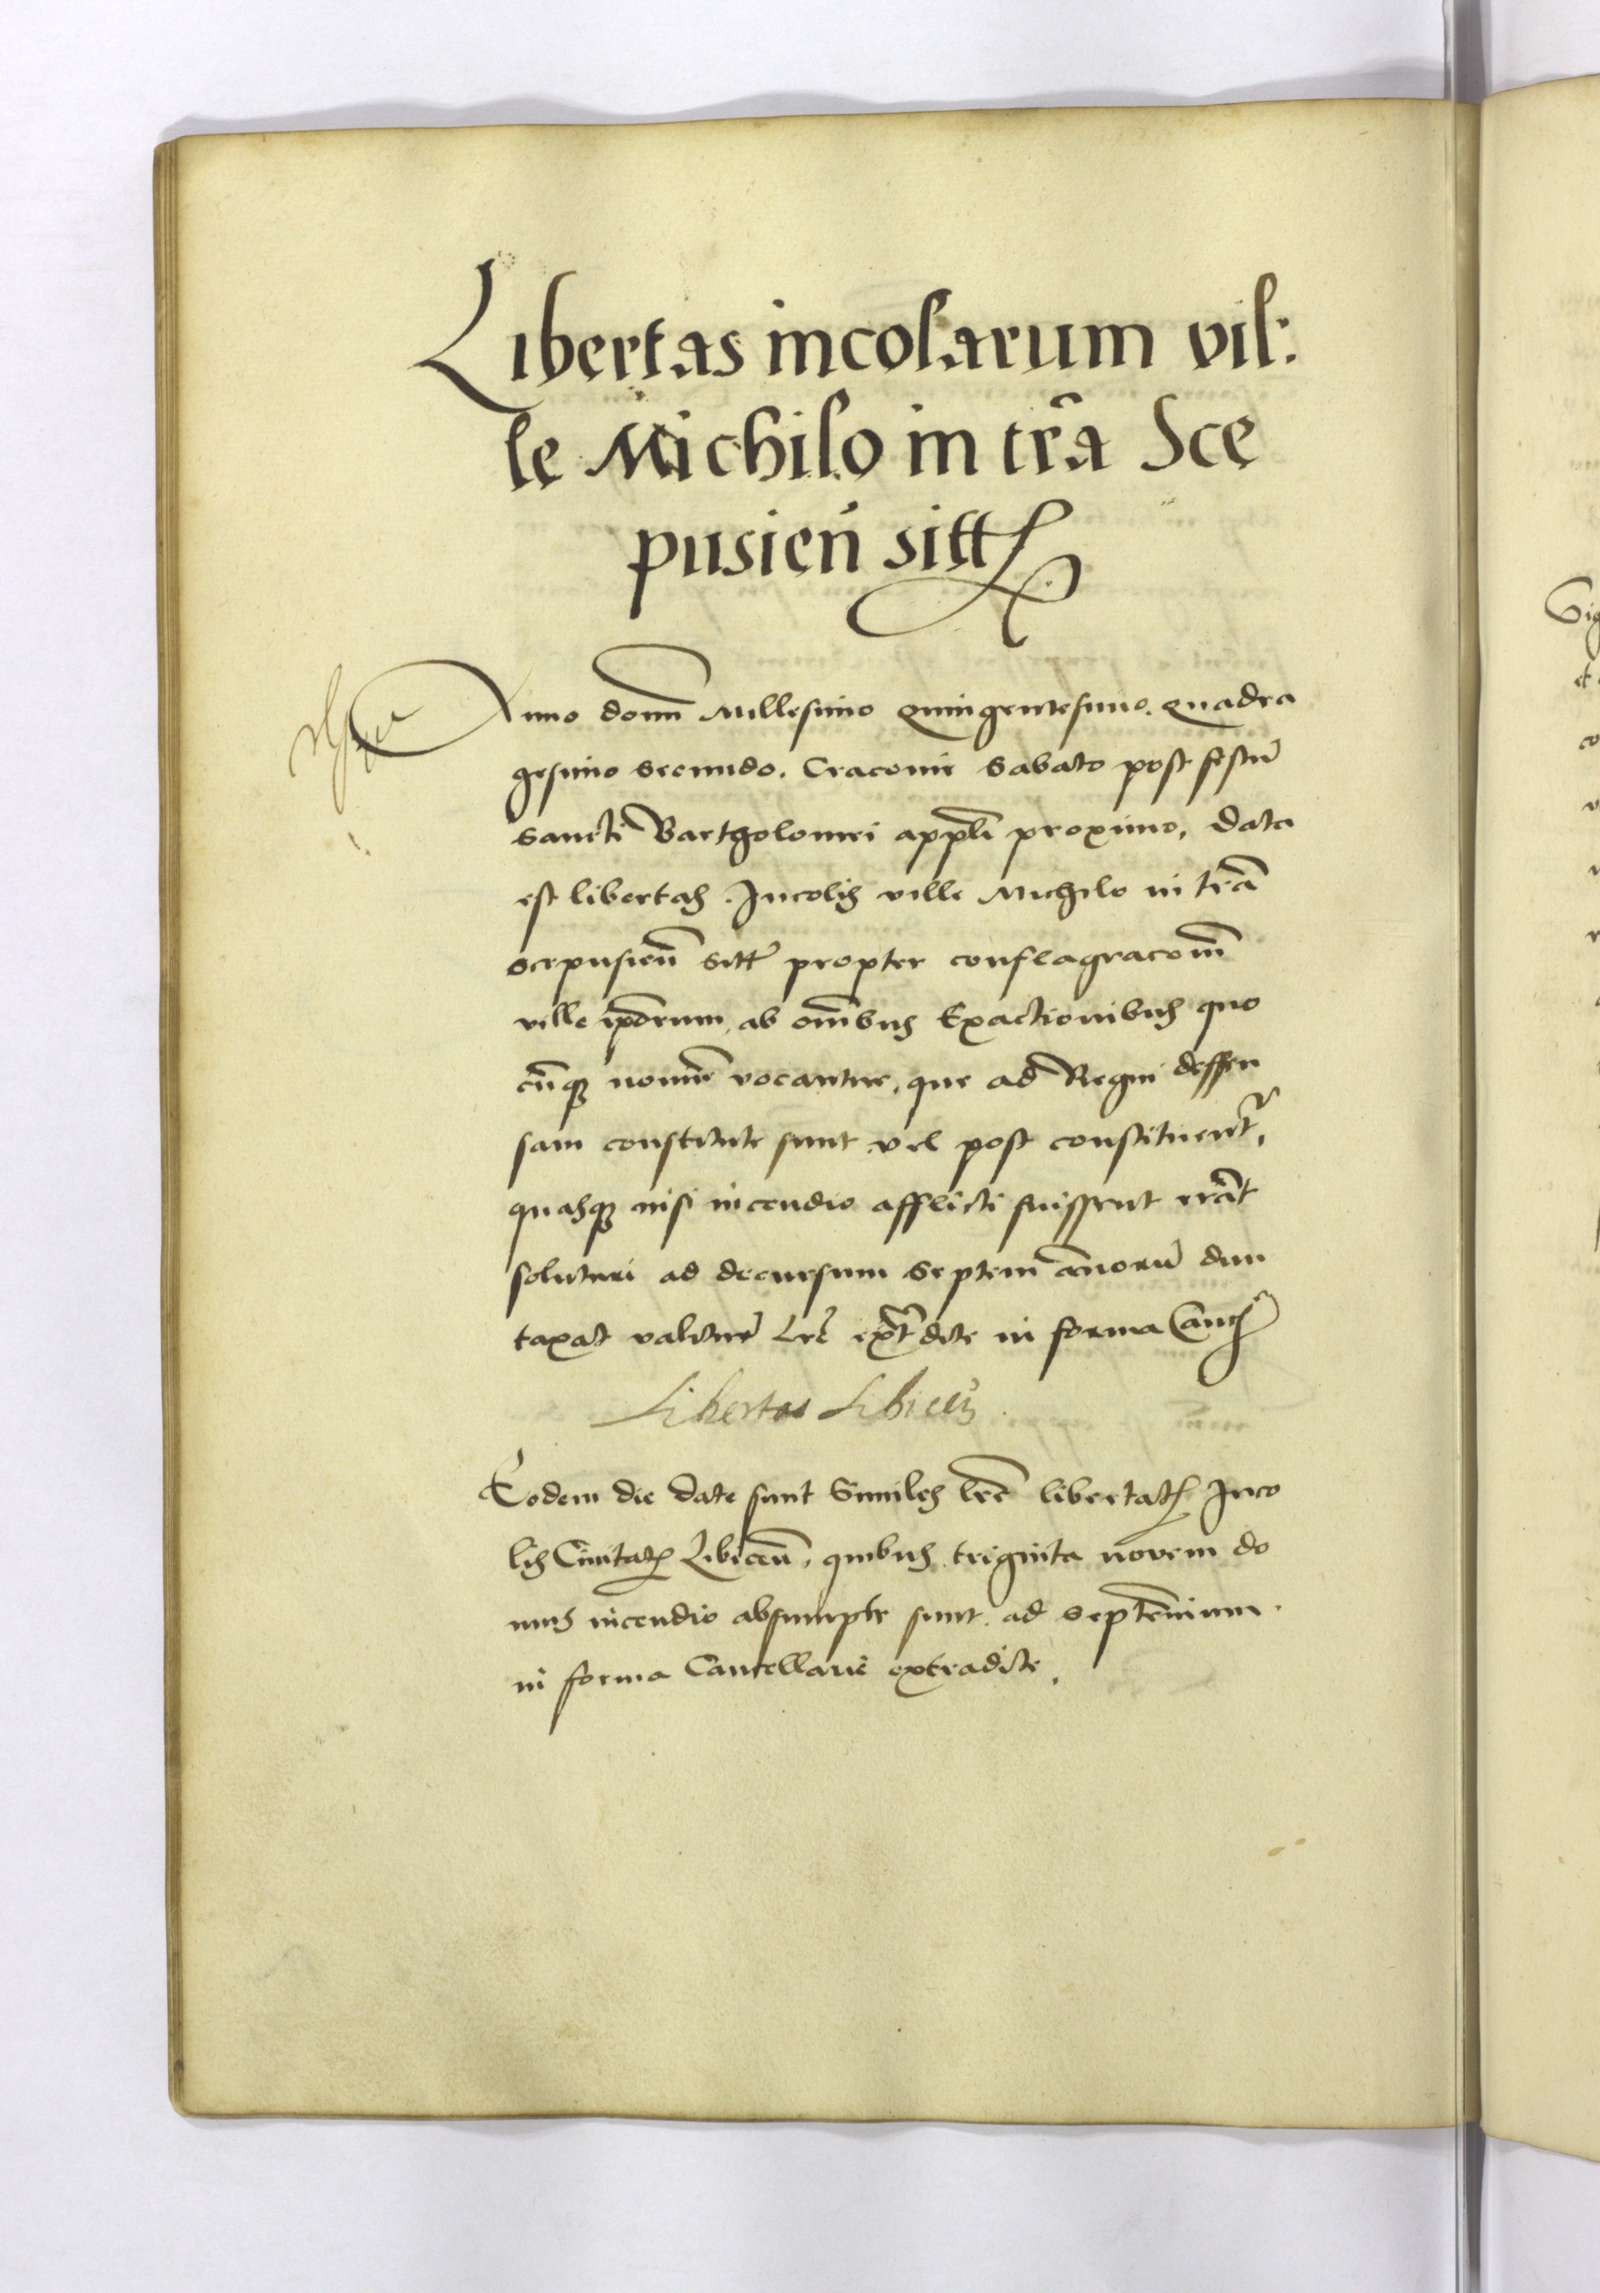 Libertas incolarum vil:
le Michilo in tr̃a Sce
pusieñ sitt
Anno domĩ Millesimo Quingentesimo Quadra
gesimo secundo. Cracovie Sabato post festũ
Sancti Bartholomei appl̃i proximo, data
est libertas Incolis ville Michilo in tr̃a
Scepusieñ sitt̃ propter conflagracom̃
ville ip̃orum, ab om̃ibus Exactionibus quo
cũq nomĩe vocantur, que ad Regni deffen
sam constitute sunt vel post constituent̃,
quasq nisi incendio afflicti fuissent erãt
soluturi ad decursum Septem ãnorũ dun
taxat valiturẽ Lr̃e ext̃dite in forma Canc̃
Libertas Libiceñ
Eodem die date sunt Similes lr̃e libertat Inco
lis Civitat Libiceñ, quibus triginta novem do
mus incendio absumpte sunt ad septẽnium
in forma Cancellarie extradite.